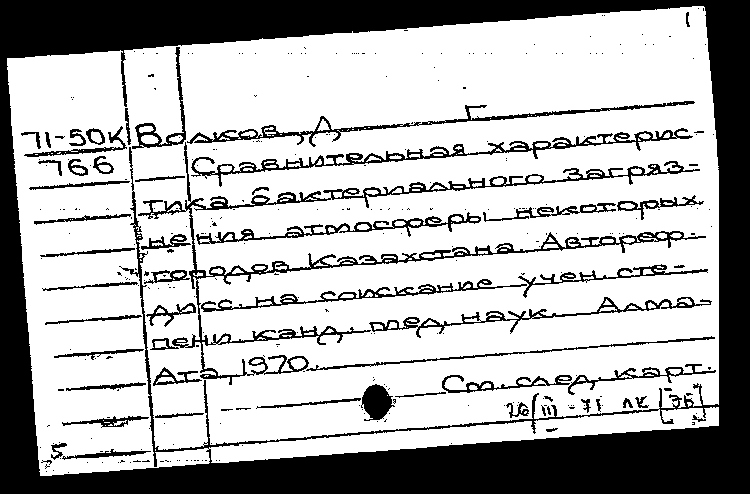 1
71-50К Волков, Д. Г
766 Сравнительная характерис-
тика бактериального загряз-
нения атмосферы некоторых
городов Казахстана. Автореф.
дисс. на соискание учен. сте-
пени канд. мед. наук. Алма-
Ата, 1970.
См. след. карт.
26/III-71 ЛК [ЭБ]
5